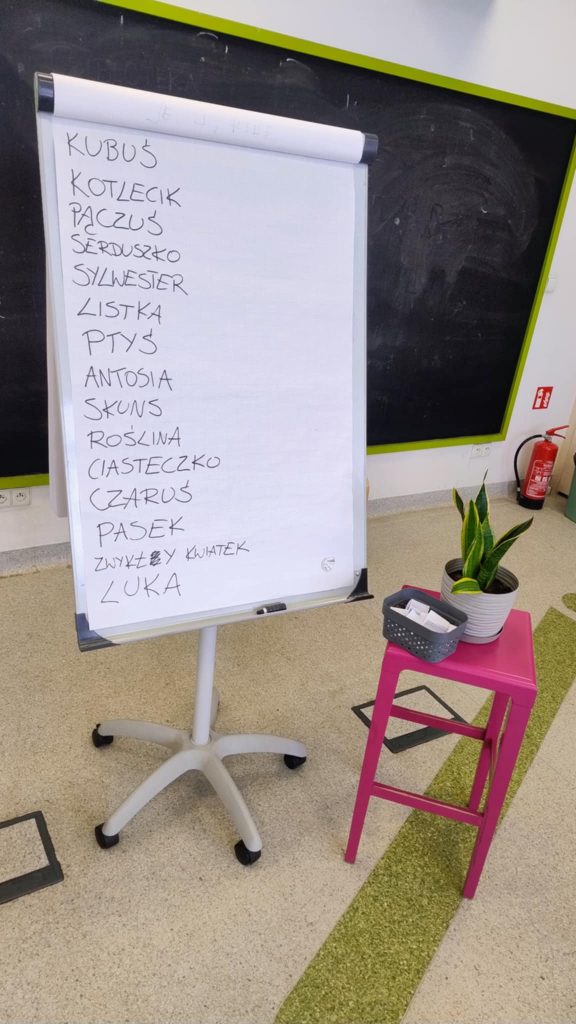 KUBUŚ
KOTLECIK
PĄCZUŚ
SERDUSZKO
SYLWESTER
LISTKA
PTYŚ
ANTOSIA
SKUNS
ROŚLINA
CIASTECZKO
CZARUŚ
PASEK
ZWYKŁY KWIATEK
LUKA